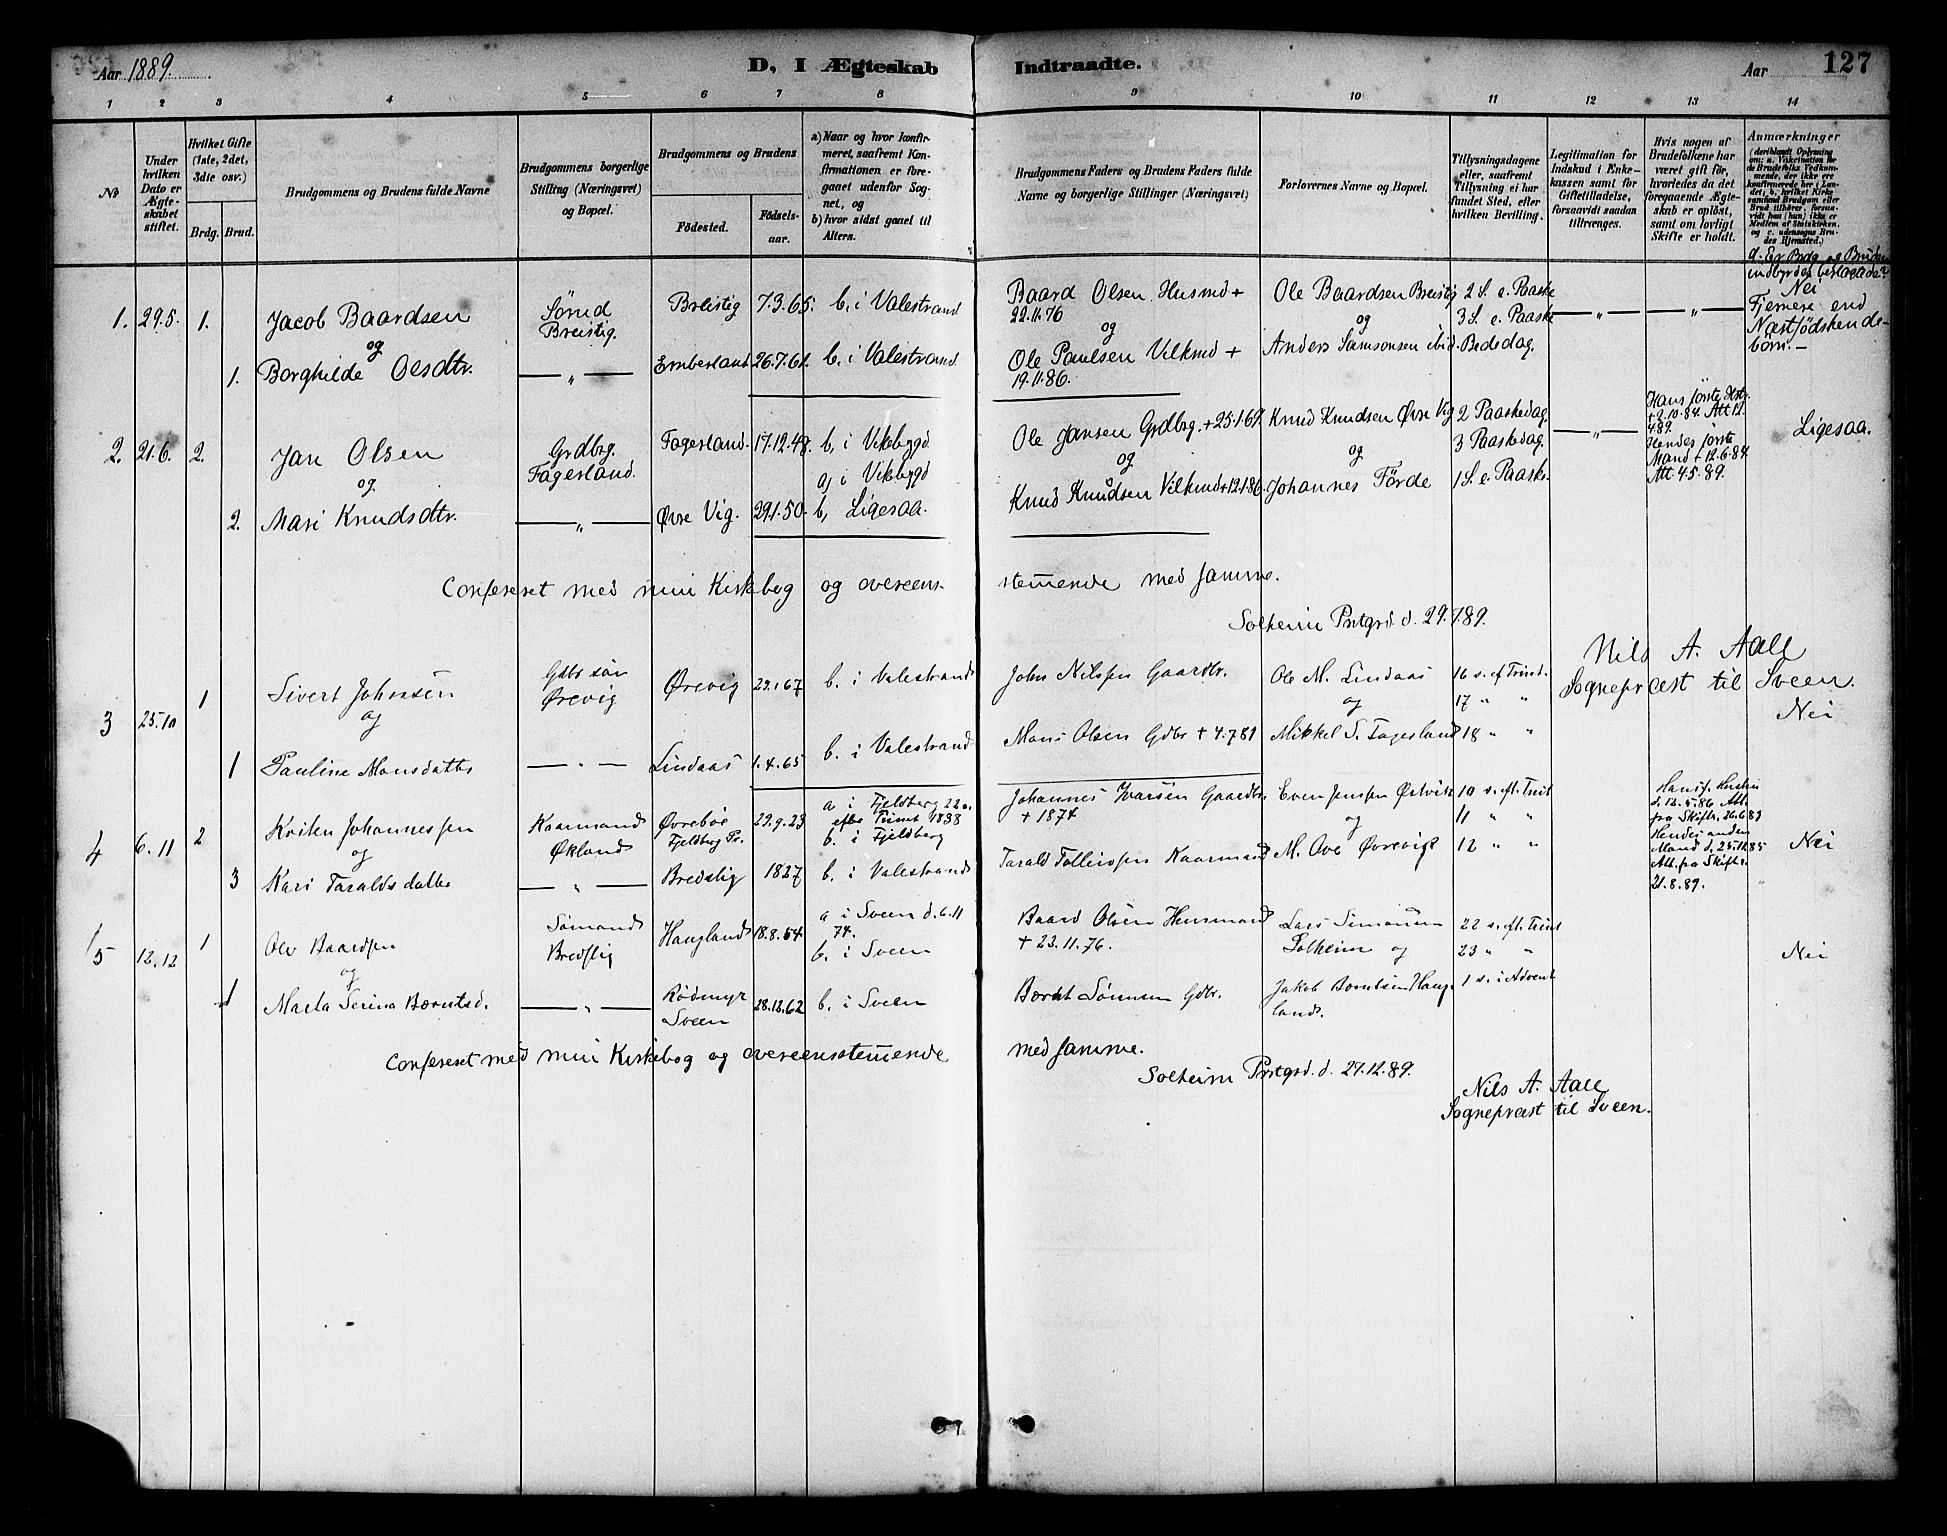 Aar 1889.
D, I Ægteskab Indtraadte.
Aar 127
1 2 3 4 5 6 7 8 9 10 11 12 13 14
No
Under hvilken Dato er Ægteskabet stiftet.
Hvilket Gifte (1ste, 2det, 3die osv.)
Brdg. Brud.
Brudgommens og Brudens fulde Navne
Brudgommens borgerlige Stilling (Næringsvei) og Bopæl.
Brudgommens og Brudens
Fødested.
Fødselsaar.
a) Naar og hvor konfirmeret, saafremt Konfirmationen er foregaaet udenfor Sognet, og
b) hvor sidst gaaet til Alters.
Brudgommens Faders og Brudens Faders fulde Navne og borgerlige Stillinger (Næringsvei)
Forlovernes Navne og Bopæl.
Tillysningsdagene eller, saafremt Tillysning ei har fundet Sted, efter hvilken Bevilling.
Legitimation for Indskud i Enkekassen samt for Giftetilladelse, forsaavidt saadan tiltrænges.
Hvis nogen af Brudefolkene har været gift før, hvorledes da det foregaaende Ægteskab er opløst, samt om lovligt Skifte er holdt.
Anmærkninger
(deriblandt Oplysning om: a. Vakcination for de Brudefolks Vedkommende, der ikke ere konfirmerede her i Landet, b. hvilket Kirkesamfund Brudgom eller Brud tilhører, forsaavidt han (hun) ikke er Medlem af Statskirken, og c. udensogns Brudes Hjemsted.)
d. Er Brdg og Bruden indbyrdes beslægtede?
1. 29.5. 1. Jacob Baardsen Sømd Breistig. Breistig 7.3.65. b. i Valestrand Baard Olsen Husmd + 22.11.76 Ole Baardsen Breistig 2 S. e. Paaske — " — — " — Nei
og og og 3 S. e. Paaske Fjernere end Næstsødskendebørn. —
1. Borghilde Olsdtr. — " — Emberland 26.7.61. b. i Valestrand Ole Paulsen Vilkmd + 19.11.86. Anders Samsonsen ibid. Bededag.
2. 21.6. 2. Jan Olsen Grdbrg. Fagerland. Fagerland. 17.12.48. b, i Vikebygd Ole Jansen Grdbrg. + 25.1.69. Knud Knudsen Øvre Vig 2 Paaskedag. — " — Hans første Hstr. + 2.10.84. Att 12.4.89. Ligesaa.
og a, i Vikebygd og og 3 Paaskedag. Hendes første Mand + 12.6.84.
2. Mari Knudsdtr. — " — Øvre Vig. 29.1.50. b, Ligesaa. Knud Knudsen Vilkmd + 12.1.86. Johannes Förde 1 S. e. Paaske. Att. 4.5.89.
Confereret med min Kirkebog og overeens- stemende med samme.
Solheim Prstgrd. d. 29.7.89.
Nils A. Aall
Sognepræst til Sveen.
3 25.10 1 Sivert Johnsen Gdbr søn Ørevig Ørevig 29.1.67 b. i Valestrand John Nilssen Gaardbr. Ole M. Lindaas 16 s. ef Trint. Nei
og og 17 " "
1 Pauline Monsdatter — " — Lindaas 1.4.65 b. i Valestrand Mons Olsen Gdbr + 4.7.81 Mikkel S. Fagerland 18 " "
4 6.11 2 Johannessen Kaarmand Økland Øvrebøe Fjeldberg Pr. 29.9.23 a i Fjeldberg 22 s. efter Trinit 1838 b. i Fjeldberg Johannes Ivarsen Gaardbr. + 1874 Even Jensen Ørevik 10 s. eft. Trint Hans f. Hustru d. 12.5.86 Att. fra Skiftr. 26.6.89 Nei
og og 11 " " Hendes anden Mand d. 25.11.85
3 Kari Taraldsdatter — " — Bredstig 1827 b. i Valestrand Tarald Tollevsen Kaarmand M. Ove Ørevig 12 " " Att. fra Skiftr. 21.8.89.
5 12.12 1 Ole Baardsen Sømand Bredstig Haugland 18.8.54 a i Sveen d. 6.11 74. b. i Sveen Baard Olsen Husmand + 22.11.76. Lars Simonsen Solheim og 22 s. eft. Trint Nei
og 23 " "
1 Marta Serina Berntsd. — " — Rødmyr Sveen 28.12.62 b. i Sveen Berht Sørensen Gdbr. Jakob Berntsen Haugland. 1 s. i Advent
Confereret med min Kirkebog og overeensstemende med samme.
Solheim Prstgrd. d. 27.12.89.
Nils A. Aall
Sognepræst til Sveen.